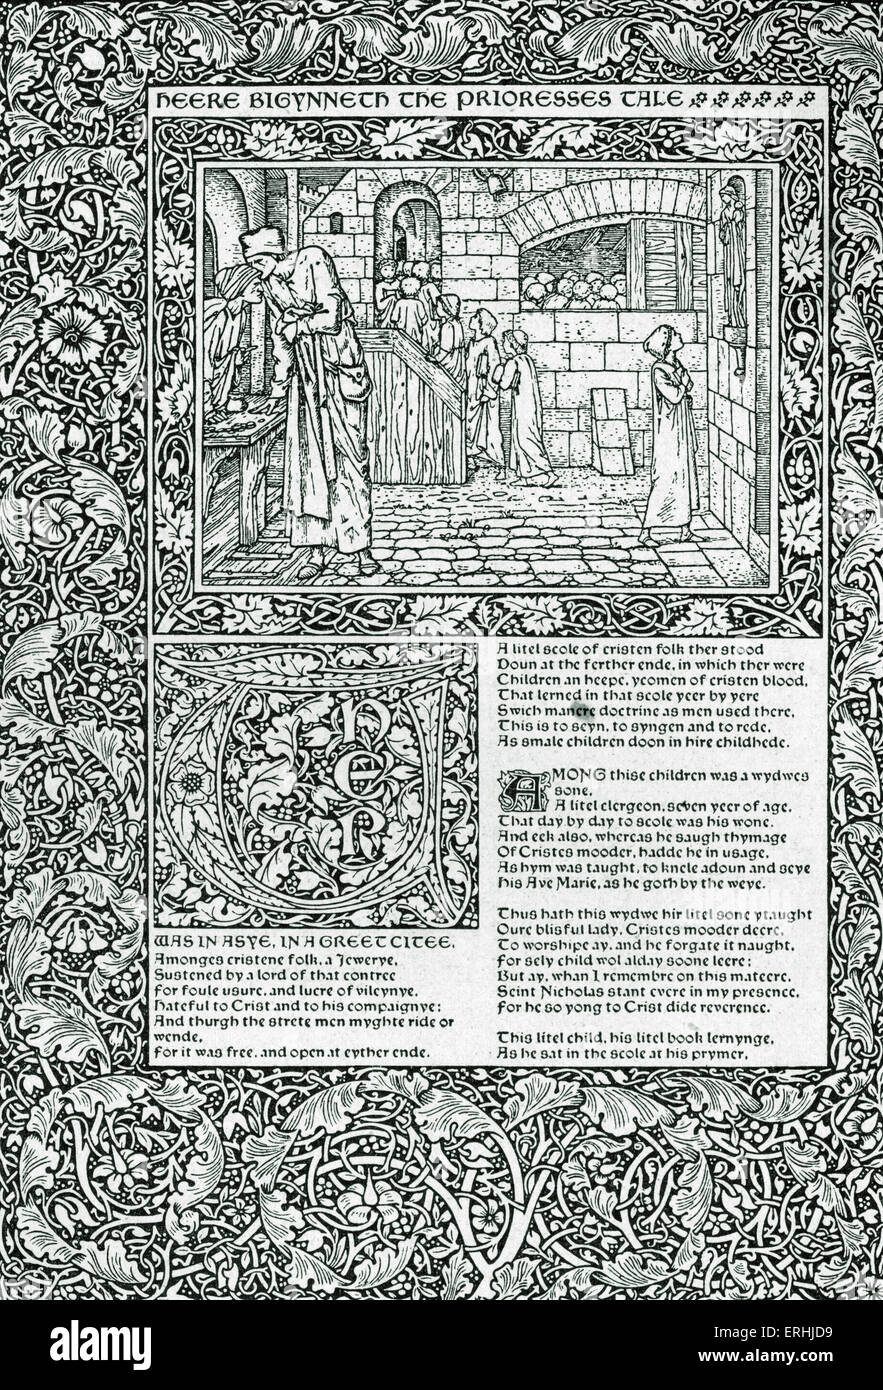 HEERE BIGYNNETH THE PRIORESSES TALE
THER
WAS IN ASYE, IN A GREET CITEE,
Amonges cristene folk, a Jewerye,
Sustened by a lord of that contree
For foule usure, and lucre of vileynye,
Hateful to Crist and to his compaignye:
And thurgh the strete men myghte ride or
wende,
For it was free, and open at eyther ende.
A litel scole of cristen folk ther stood
Doun at the ferther ende, in which ther were
Children an heepe, ycomen of cristen blood,
That lerned in that scole yeer by yere
Swich manere doctrine as men used there,
This is to seyn, to syngen and to rede,
As smale children doon in hire childhede.
AMONG thise children was a wydwes
sone,
A litel clergeon, seven yeer of age,
That day by day to scole was his wone,
And eek also, whereas he saugh thymage
Of Cristes mooder, hadde he in usage,
As hym was taught, to knele adoun and seye
His Ave Marie, as he goth by the weye.
Thus hath this wydwe hir litel sone ytaught
Oure blisful lady, Cristes mooder deere,
To worshipe ay, and he forgate it naught,
For sely child wol alday soone leere:
But ay, whan I remembre on this mateere,
Seint Nicholas stant evere in my presence,
For he so yong to Crist dide reverence.
This litel child, his litel book lernynge,
As he sat in the scole at his prymer,
alamy
Image ID: ERHJD9
www.alamy.com